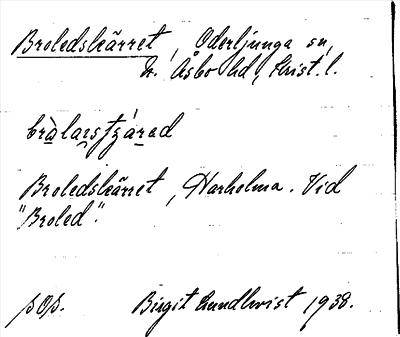 Broledskärret, Oderljunga sn,
N. Åsbo hd, Krist. l.
bràlaısʃtʒárad
Broledskärret, Harhelma. Vid
"Broled".
pop. Birgit Lundkvist 1938.